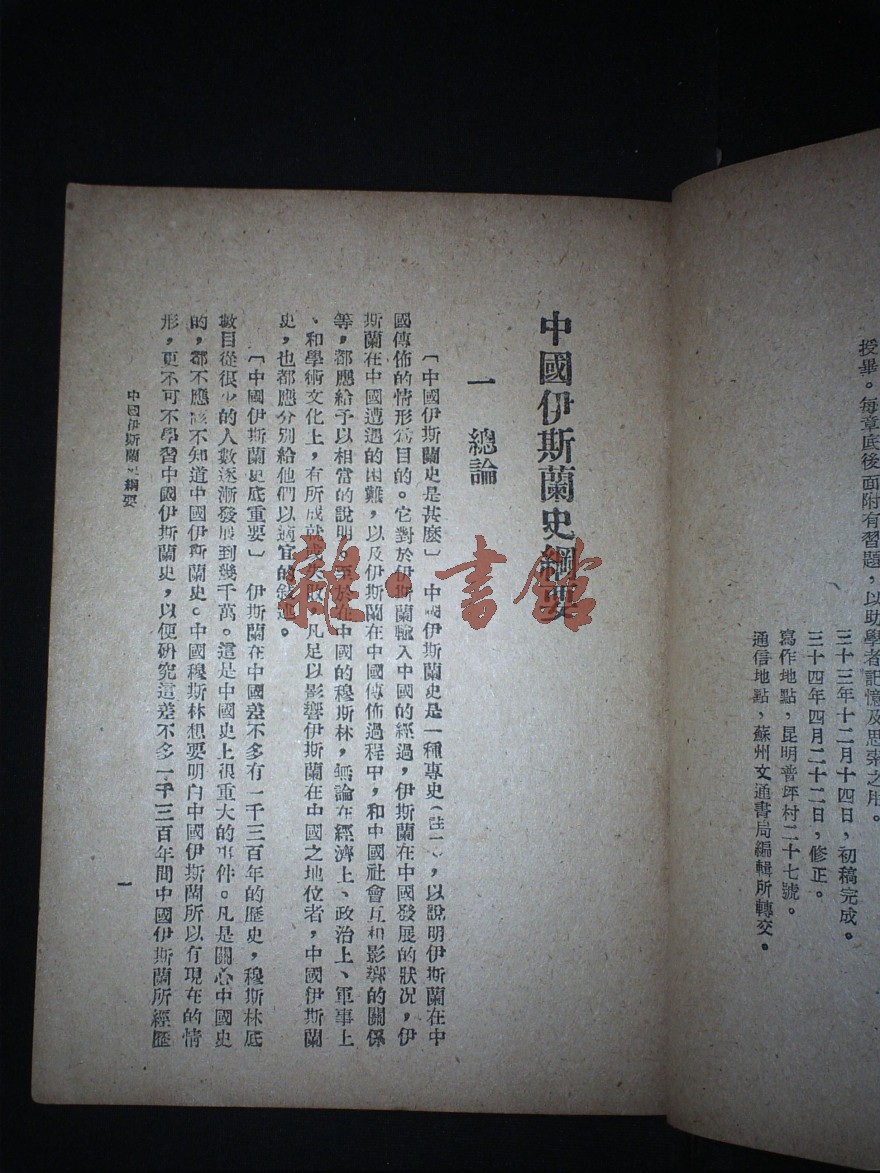 授畢。每章底後面附有習題，以助學者記憶及思索之用。
三十三年十二月十四日，初稿完成。
三十四年四月二十二日，修正。
寫作地點，昆明普坪村二十七號。
通信地點，蘇州文通書局編輯所轉交。
中國伊斯蘭史綱要
一　總論
〔中國伊斯蘭史是甚麼〕　中國伊斯蘭史是一種專史（註一），以說明伊斯蘭在中
國傳佈的情形為目的。它對於伊斯蘭輸入中國的經過，伊斯蘭在中國發展的狀況，伊
斯蘭在中國遭遇的困難，以及伊斯蘭在中國傳佈過程中，和中國社會互相影響的關係
等，都應給予以相當的說明。至於在中國的穆斯林，無論在經濟上、政治上、軍事上
、和學術文化上，有所成就或失敗，凡足以影響伊斯蘭在中國之地位者，中國伊斯蘭
史，也都應分別給他們以適宜的敘述。
〔中國伊斯蘭史底重要〕　伊斯蘭在中國差不多有一千三百年的歷史，穆斯林底
數目從很少的人數逐漸發展到幾千萬。這是中國史上很重大的事件。凡是關心中國史
的，都不應該不知道中國伊斯蘭史。中國穆斯林想要明白中國伊斯蘭所以有現在的情
形，更不可不學習中國伊斯蘭史，以便研究這差不多一千三百年間中國伊斯蘭所經歷
中國伊斯蘭史綱要
一
雜·書館